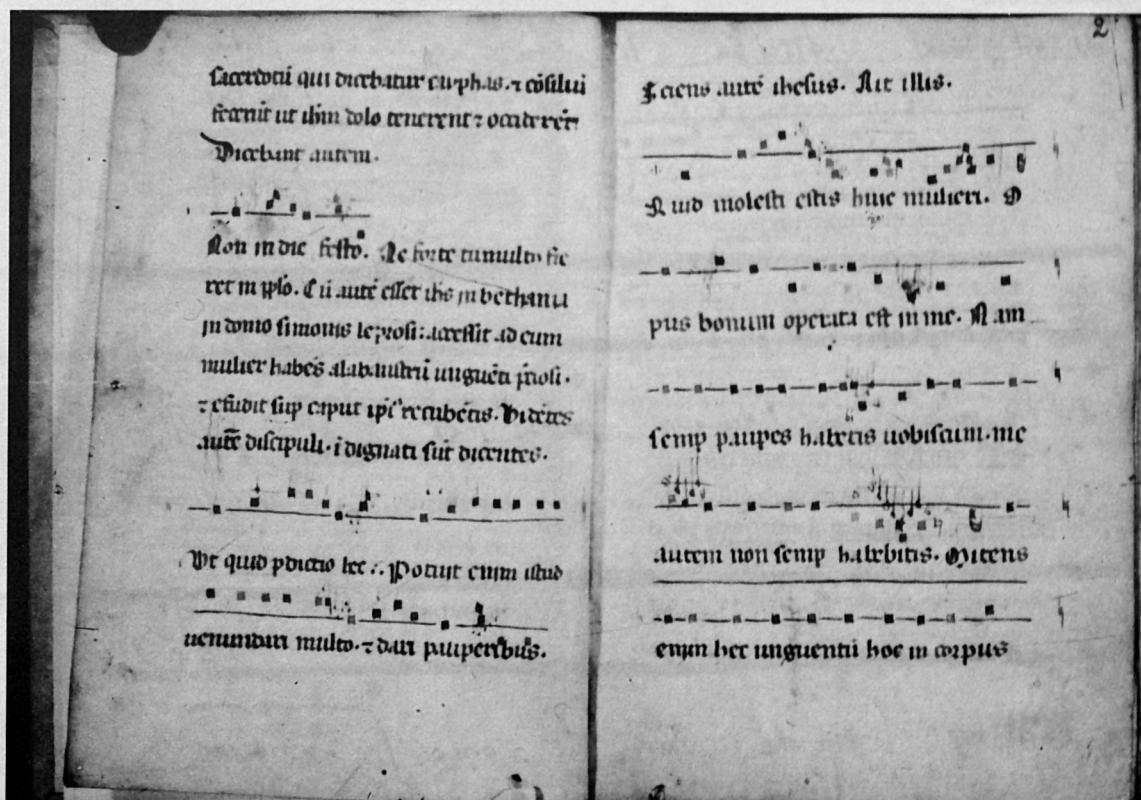 sacerdotū qui dicebatur cayphas. ⁊ cōsiliū
fecerūt ut ihm dolo tenerent ⁊ occiderēt
Dicebant autem.
Non in die festo. Ne forte tumultus fie
ret in pplo. Cū autē esset ihs in bethania
in domo simonis leprosi: accessit ad eum
mulier habēs alabaustrū unguēti p̄tiosi.
⁊ effudit sup caput ipi᷒ recubētis. Videtes
autē discipuli. īdignati sūt dicentes.
Vt quid pditio hec ∴ Potuit enim istud
uenundari multo. ⁊ dari pauperibus.
2
Sciens autē ihesus. Ait illis.
Quid molesti estis huic mulieri. O
pus bonum operata est in me. Nam
semp paupes habetis uobiscum. me
autem non semp habebitis. Mitens
enim hec unguentū hoc in corpus